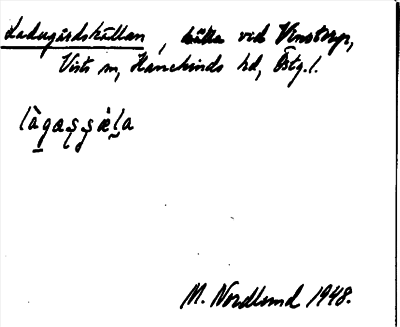 Ladugårdskällan, källa ved Vinstorp,
Vists sn, Hanekinds hd, Östg.l.
M. Nordlund 1948.